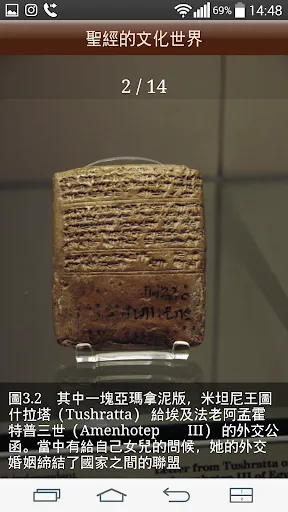 69% 14:48
聖經的文化世界
2 / 14
圖3.2 其中一塊亞瑪拿泥版，米坦尼王圖
什拉塔（Tushratta） 給埃及法老阿孟霍
特普三世（Amenhotep III）的外交公
函。當中有給自己女兒的問候，她的外交
婚姻締結了國家之間的聯盟